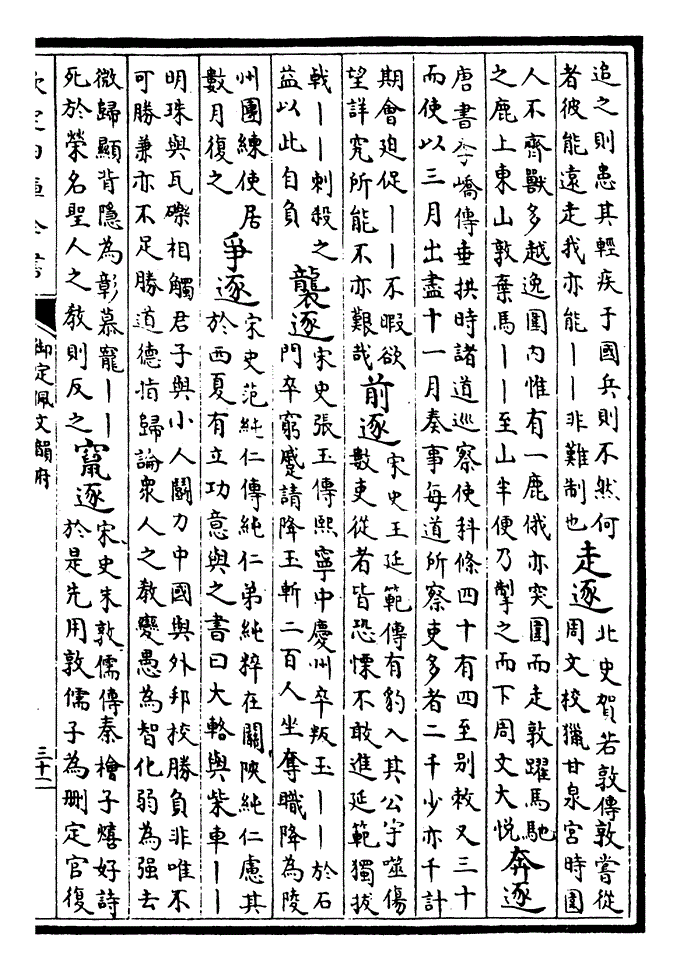 追之則患其輕疾于國兵則不然何
者彼能遠走我亦能——非難制也
走逐
北史賀若敦傳敦嘗從
周文校獵甘泉宮時圍
人不齊獸多越逸圍内惟有一鹿俄亦突圍而走敦躍馬馳
之鹿上東山敦棄馬——至山半便乃掣之而下周文大悦
奔逐
唐書李嶠傳垂拱時諸道巡察使科條四十有四至别敕又三十
而使以三月出盡十一月奏事每道所察吏多者二千少亦千計
期會迫促——不暇欲
望詳究所能不亦艱哉
前逐
宋史王延範傳有豹入其公宇噬傷
數吏從者皆恐慄不敢進延範獨拔
戟——刺殺之
益以此自負
襲逐
宋史張玉傳熙寧中慶州卒叛玉——於石
門卒窮蹙請降玉斬二百人坐奪職降為陵
州團練使居
數月復之
爭逐
宋史范純仁傳純仁弟純粹在關陜純仁慮其
於西夏有立功意與之書曰大輅與柴車——
明珠與瓦礫相觸君子與小人鬭力中國與外邦校勝負非唯不
可勝兼亦不足勝道德指歸論衆人之教變愚為智化弱為强去
微歸顯背隱為彰慕寵——
死於榮名聖人之教則反之
竄逐
宋史朱敦儒傳秦檜子熺好詩
於是先用敦儒子為刪定官復
欽定四庫全書
御定佩文韻府
三十二